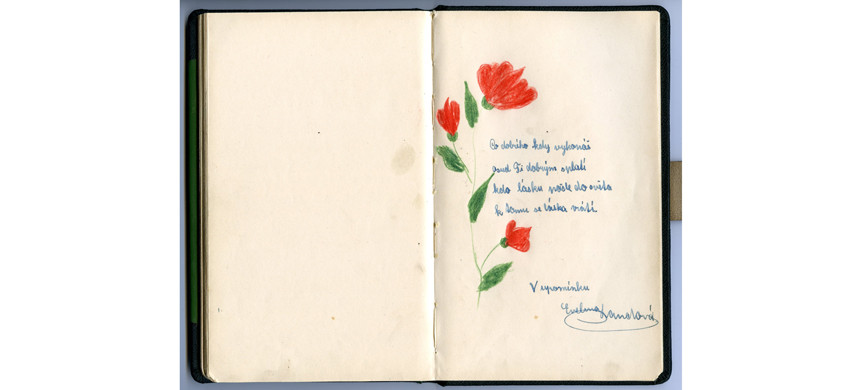 Co dobrého kdy vykonáš
osud Ti dobrým splatí
kdo lásku pošle do světa
k tomu se láska vrátí.
V upomínku
Evelina